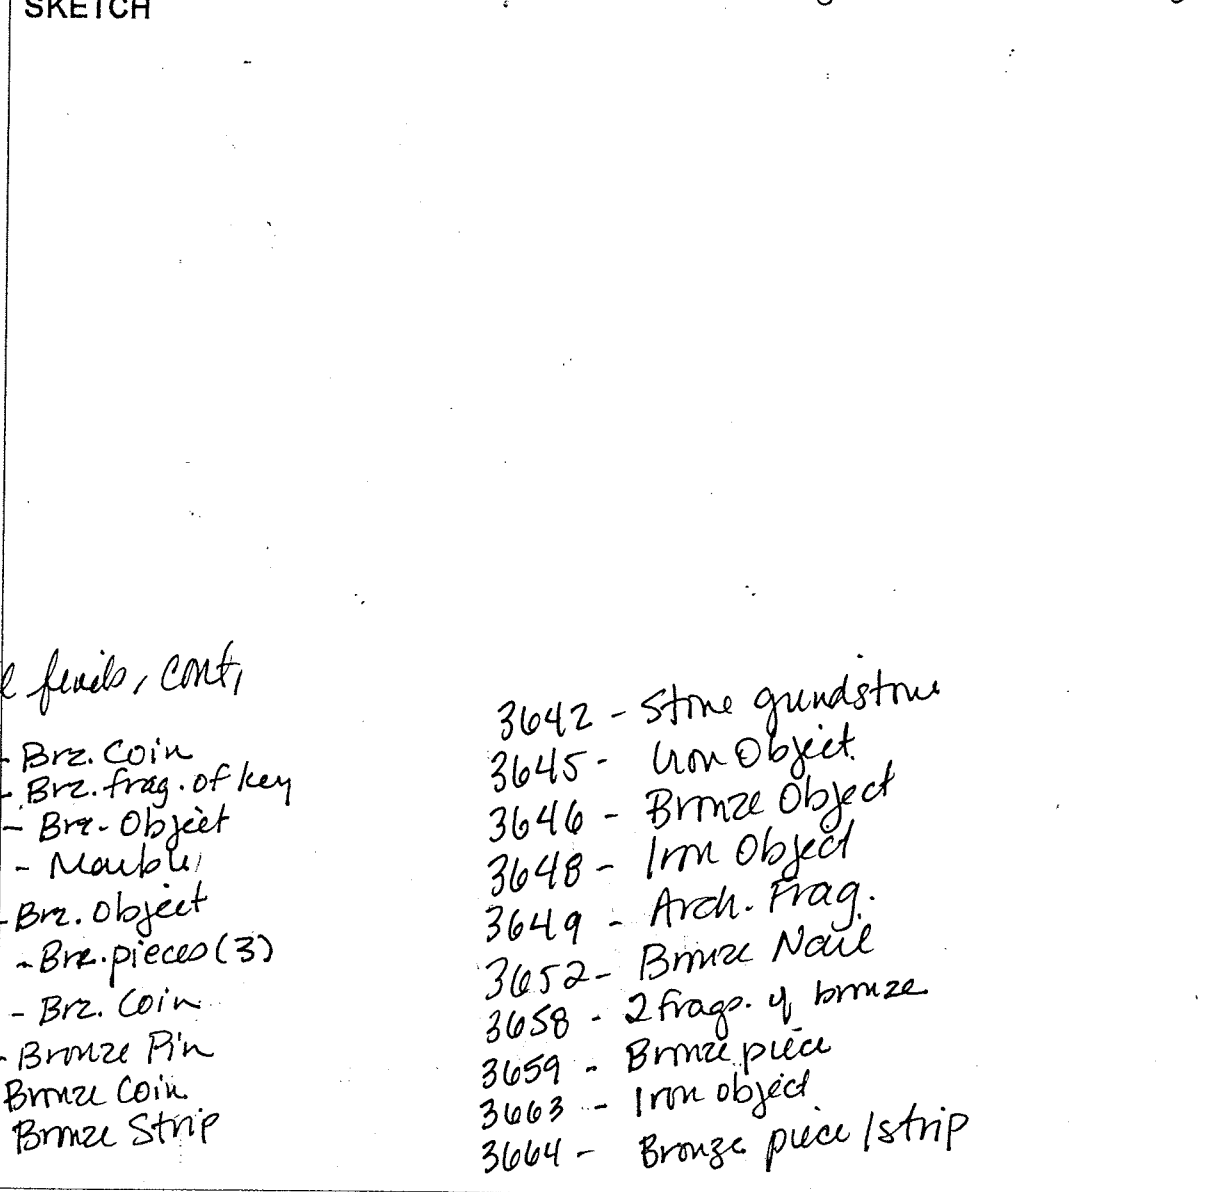 SKETCH
finds, cont,
- Brz. Coin
- Brz. frag. of key
- Brz. Object
- Marble
- Brz. Object
- Brz. pieces (3)
- Brz. Coin
- Bronze Pin
Bronze Coin
Bronze Strip
3642 - Stone grindstone
3645 - Iron Object
3646 - Bronze Object
3648 - Iron Object
3649 - Arch. Frag.
3652 - Bronze Nail
3658 - 2 frags. of bronze
3659 - Bronze piece
3663 - Iron object
3664 - Bronze piece / strip